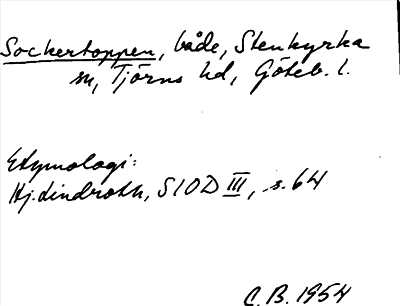 Sockertoppen, både, Stenkyrka
sn, Tjörns hd, Göteb. l.
Etymologi:
Hj. Lindroth, SIOD III, s. 64
C.B. 1954